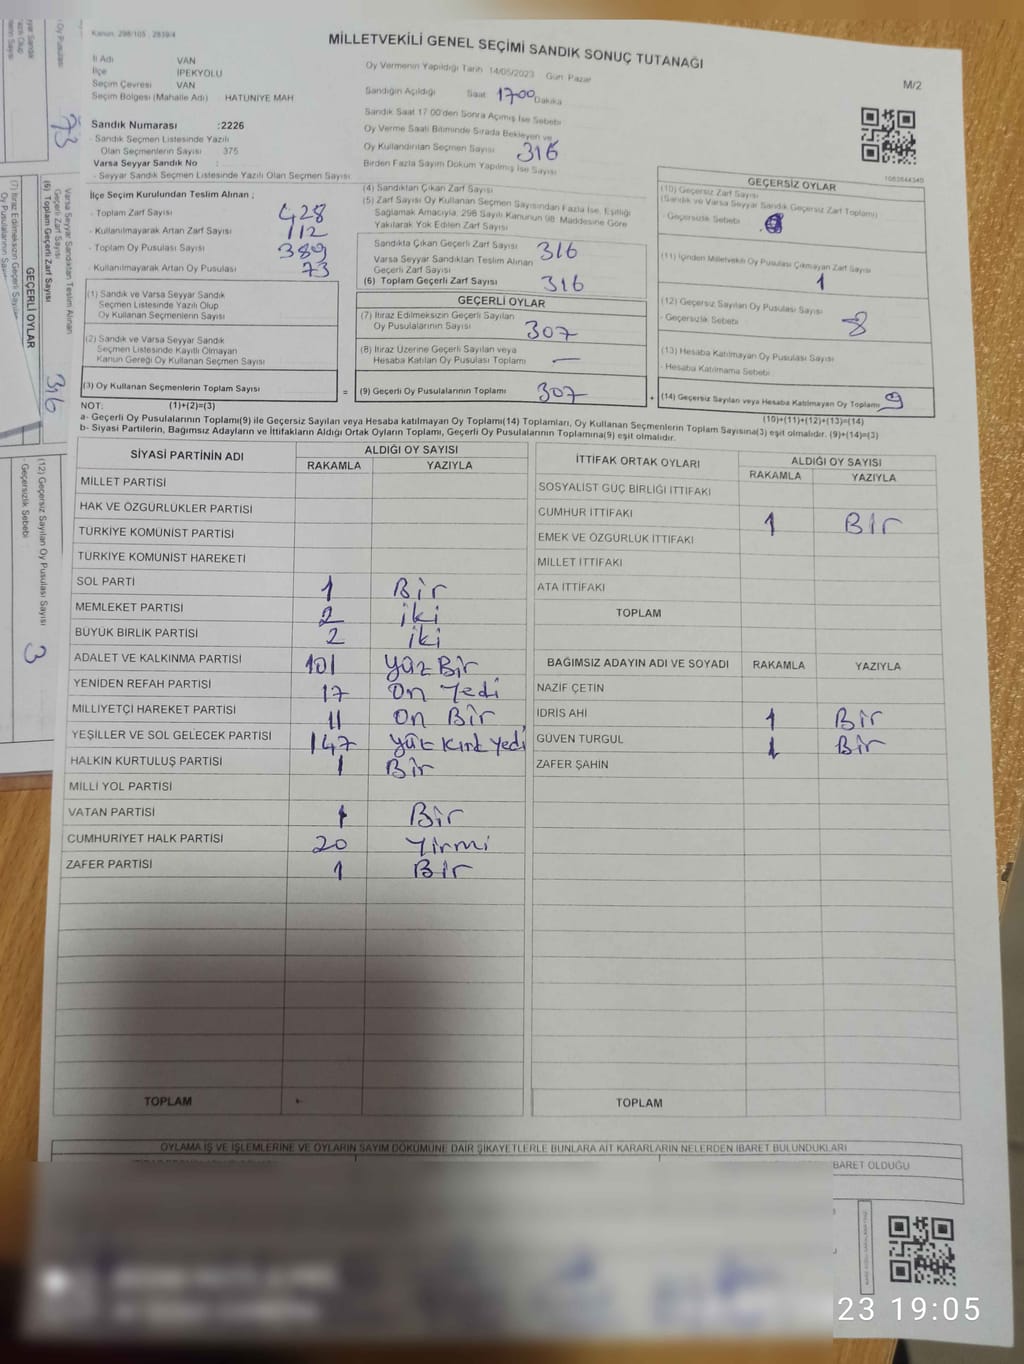 Kanun, 298/105 , 2839/4
MİLLETVEKİLİ GENEL SEÇİMİ SANDIK SONUÇ TUTANAĞI
M/2
İl Adı VAN
İlçe İPEKYOLU
Seçim Çevresi VAN
Seçim Bölgesi (Mahalle Adı) HATUNİYE MAH
Sandık Numarası :2226
- Sandık Seçmen Listesinde Yazılı
Olan Seçmenlerin Sayısı : 375
Varsa Seyyar Sandık No :
- Seyyar Sandık Seçmen Listesinde Yazılı Olan Seçmen Sayısı
Oy Vermenin Yapıldığı Tarih 14/05/2023 Gün Pazar
Sandığın Açıldığı Saat 17 00 Dakika
Sandık Saat 17 00'den Sonra Açılmış İse Sebebi
Oy Verme Saati Bitiminde Sırada Bekleyen ve
Oy Kullandırılan Seçmen Sayısı 316
Birden Fazla Sayım Döküm Yapılmış İse Sayısı
İlçe Seçim Kurulundan Teslim Alınan ;
- Toplam Zarf Sayısı 428
- Kullanılmayarak Artan Zarf Sayısı 112
- Toplam Oy Pusulası Sayısı 389
- Kullanılmayarak Artan Oy Pusulası 73
(1) Sandık ve Varsa Seyyar Sandık
Seçmen Listesinde Yazılı Olup
Oy Kullanan Seçmenlerin Sayısı
(2) Sandık ve Varsa Seyyar Sandık
Seçmen Listesinde Kayıtlı Olmayan
Kanun Gereği Oy Kullanan Seçmen Sayısı
(3) Oy Kullanan Seçmenlerin Toplam Sayısı =
(4) Sandıktan Çıkan Zarf Sayısı
(5) Zarf Sayısı Oy Kullanan Seçmen Sayısından Fazla İse, Eşitliği
Sağlamak Amacıyla, 298 Sayılı Kanunun 98. Maddesine Göre
Yakılarak Yok Edilen Zarf Sayısı
Sandıkta Çıkan Geçerli Zarf Sayısı 316
Varsa Seyyar Sandıktan Teslim Alınan
Geçerli Zarf Sayısı
(6) Toplam Geçerli Zarf Sayısı 316
GEÇERLİ OYLAR
(7) İtiraz Edilmeksizin Geçerli Sayılan
Oy Pusulalarının Sayısı 307
(8) İtiraz Üzerine Geçerli Sayılan veya
Hesaba Katılan Oy Pusulası Toplamı —
(9) Geçerli Oy Pusulalarının Toplamı 307 +
GEÇERSİZ OYLAR
(10) Geçersiz Zarf Sayısı
(Sandık ve Varsa Seyyar Sandık Geçersiz Zarf Toplamı)
- Geçersizlik Sebebi
(11) İçinden Milletvekili Oy Pusulası Çıkmayan Zarf Sayısı
1
(12) Geçersiz Sayılan Oy Pusulası Sayısı
- Geçersizlik Sebebi 8
(13) Hesaba Katılmayan Oy Pusulası Sayısı
- Hesaba Katılmama Sebebi
(14) Geçersiz Sayılan veya Hesaba Katılmayan Oy Toplamı 9
NOT: (1)+(2)=(3)
(10)+(11)+(12)+(13)=(14)
a- Geçerli Oy Pusulalarının Toplamı(9) ile Geçersiz Sayılan veya Hesaba katılmayan Oy Toplamı(14) Toplamları, Oy Kullanan Seçmenlerin Toplam Sayısına(3) eşit olmalıdır. (9)+(14)=(3)
b- Siyasi Partilerin, Bağımsız Adayların ve İttifakların Aldığı Ortak Oyların Toplamı, Geçerli Oy Pusulalarının Toplamına(9) eşit olmalıdır.
SİYASİ PARTİNİN ADI ALDIĞI OY SAYISI
RAKAMLA YAZIYLA
MİLLET PARTİSİ
HAK VE ÖZGÜRLÜKLER PARTİSİ
TÜRKİYE KOMÜNİST PARTİSİ
TÜRKİYE KOMÜNİST HAREKETİ
SOL PARTİ 1 Bir
MEMLEKET PARTİSİ 2 iki
BÜYÜK BİRLİK PARTİSİ 2 iki
ADALET VE KALKINMA PARTİSİ 101 yüz Bir
YENİDEN REFAH PARTİSİ 17 On Yedi
MİLLİYETÇİ HAREKET PARTİSİ 11 On Bir
YEŞİLLER VE SOL GELECEK PARTİSİ 147 yüz kırk yedi
HALKIN KURTULUŞ PARTİSİ 1 Bir
MİLLİ YOL PARTİSİ
VATAN PARTİSİ 1 Bir
CUMHURİYET HALK PARTİSİ 20 Yirmi
ZAFER PARTİSİ 1 Bir
TOPLAM
İTTİFAK ORTAK OYLARI ALDIĞI OY SAYISI
RAKAMLA YAZIYLA
SOSYALİST GÜÇ BİRLİĞİ İTTİFAKI
CUMHUR İTTİFAKI 1 Bir
EMEK VE ÖZGÜRLÜK İTTİFAKI
MİLLET İTTİFAKI
ATA İTTİFAKI
TOPLAM
BAĞIMSIZ ADAYIN ADI VE SOYADI RAKAMLA YAZIYLA
NAZİF ÇETİN
İDRİS AHİ 1 Bir
GÜVEN TURGUL 1 Bir
ZAFER ŞAHİN
TOPLAM
OYLAMA İŞ VE İŞLEMLERİNE VE OYLARIN SAYIM DÖKÜMÜNE DAİR ŞİKAYETLERLE BUNLARA AİT KARARLARIN NELERDEN İBARET BULUNDUKLARI
BARET OLDUĞU
23 19:05
73
Varsa Seyyar Sandıktan Teslim Alınan
Geçerli Zarf Sayısı
(6) Toplam Geçerli Zarf Sayısı 316
GEÇERLİ OYLAR
(7) İtiraz Edilmeksizin Geçerli Sayılan
Oy Pusulalarının Sayısı
(12) Geçersiz Sayılan Oy Pusulası Sayısı
- Geçersizlik Sebebi 3